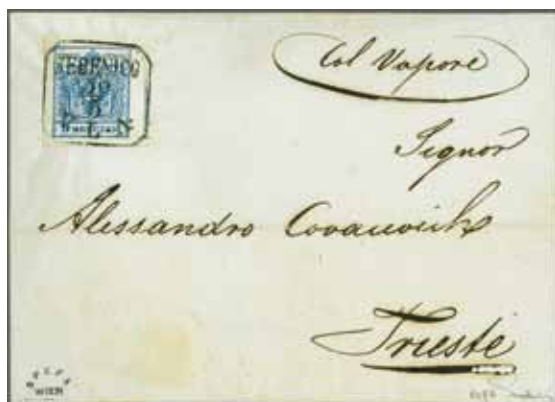 SEBENICO
Col Vapore
Signor
Alessandro Covacevich
Trieste
WIEN